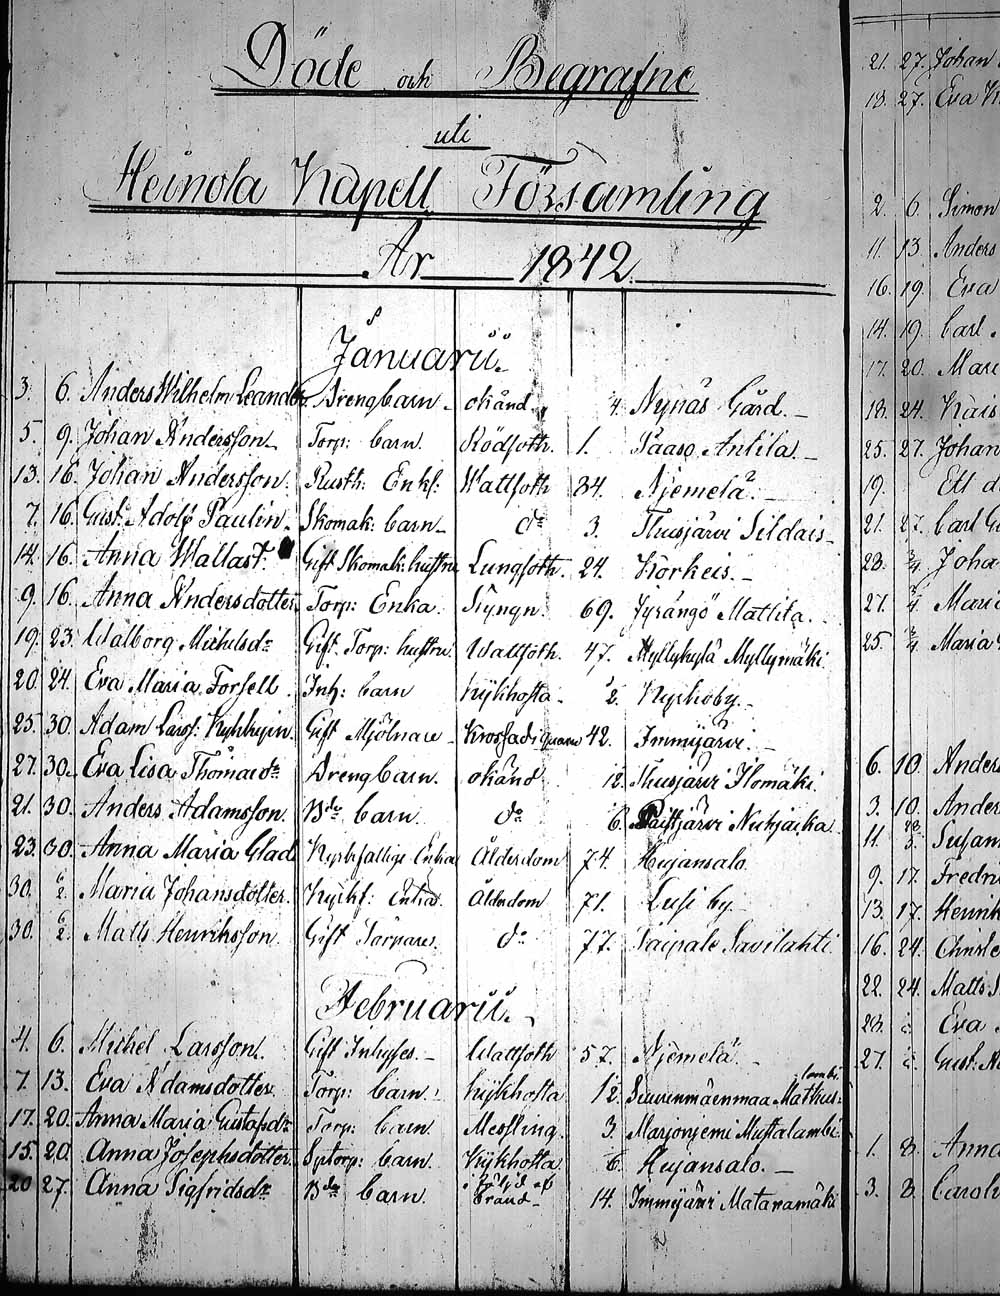 Döde och Begrafne
uti
Heinola Kapell Församling
År 1842.
Januarii.
3. 6. Anders Wilhelm Leander Drengbarn okänd 4. Nynäs Gård.
5. 9. Johan Andersson Torp: barn. Rödsoth. 1. Paaso Antila
13. 16. Johan Andersson. Rusth: Enkl: Wattsoth 34. Njemelä.
7. 16. Gust: Adolf Paulin. Skomak: barn do 3. Thusjärvi Sildais
14. 16. Anna Wallast. Gift Skomak: hustru Lungsoth. 24. Körkeis.
9. 16. Anna Andersdotter Torp: Enka. Styngn. 69. Jyrängö Mattila.
19. 23. Walborg Michelsdr Gift Torp: hustru Wattsoth. 47. Myllykylä Myllymäki
20. 24. Eva Maria Forsell. Inh: barn Kikhosta 2. Kyrkoby.
25. 30. Adam Larss: Gift Mjölnare 42. Immijärvi.
27. 30. Eva Lisa Thomasdr Drengbarn. okänd 12. Thusjärvi Ilomäki
21. 30. Anders Adamsson. Bde barn do 6. Paistjärvi
23. 30. Anna Maria Glad Kyrkfattige Enka Ålderdom 74. Heijansalo.
30. 6/2. Maria Johansdotter. Kyrkf: Enka Ålderdom 71. Lusi by.
30. 6/2. Matts Henriksson Gift Torpare. do 77. Taipale Savilahti.
Februarii.
4. 6. Michel Larsson. Gift Inhyses. Wattsoth 57. Njemelä
7. 13. Eva Adamsdotter Torp: barn. Kikhosta 12.
17. 20. Anna Maria Gustafsdr Torp: barn Messling. 3. Marjonjemi Mustalambi
15. 20. Anna Josephsdotter. barn. Kikhosta 6. Heijansalo.
20 27. Anna Sigfridsdr Bde barn. brand 14. Immijärvi Matanamäki
21. 27. Johan
18. 27. Eva
2. 6. Simon
11. 13. Anders
16. 19. Eva
14. 19. Carl
17. 20. Mari
18. 24. Kais
25. 27. Johan
19. Ett
21. 27. Carl
28. 3/4. Joha
27. 3/4. Maria
25. 3/4. Maria
6. 10. Anders
3. 10. Anders
11. Susan
9. 17. Fredri
13. 17. Henrik
16. 24. Christe
22. 24. Matts
28. Eva
27. Gust:
1. 8. Anna
3. 8. Caroli